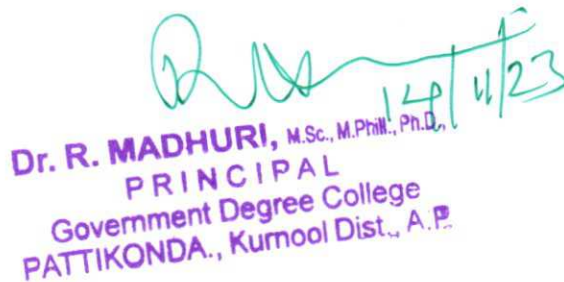 14/11/23
Dr. R. MADHURI, M.Sc., M.Phill., Ph.D.,
PRINCIPAL
Government Degree College
PATTIKONDA., Kurnool Dist., A.P.